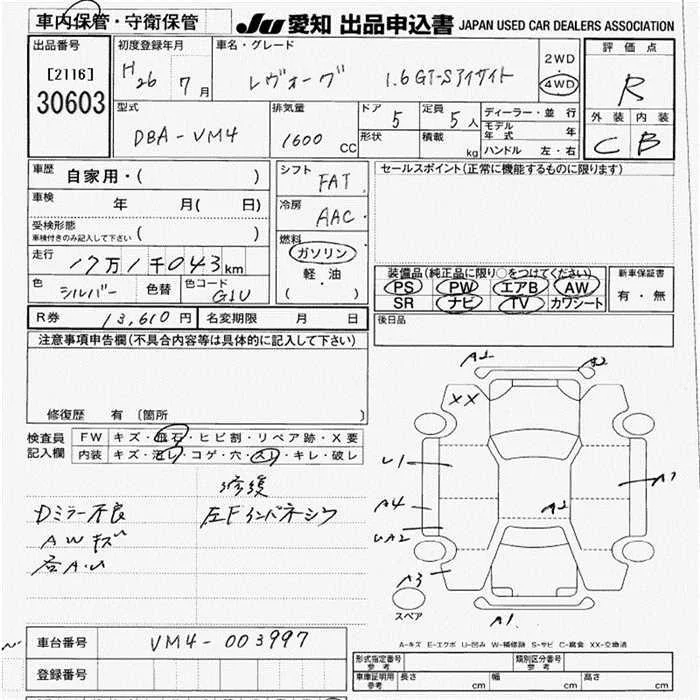 車内保管・守衛保管
JU 愛知 出品申込書 JAPAN USED CAR DEALERS ASSOCIATION
出品番号
[2116]
30603
初度登録年月
H26 7月
車名・グレード
レヴォーグ 1.6GT-Sアイサイト
2WD
4WD
評価点
R
外装 内装
C B
型式
DBA-VM4
排気量
1600 CC
ドア 5
形状
定員 5人
積載 kg
ディーラー・並行
モデル年式 年
ハンドル 左・右
車歴 自家用・( )
車検 年 月( 日)
受検形態
車検付きのみ記入して下さい ( )
走行 17万1千043km
色 シルバー 色替 色コード G1U
シフト FAT
冷房 AAC
燃料
ガソリン
軽・油
( )
セールスポイント(正常に機能するものに限ります)
装備品(純正品に限り○をつけてください)
PS PW エアB AW
SR ナビ TV カワシート
新車保証書
有・無
R券 13,610円 名変期限 月 日
後日品
注意事項申告欄(不具合内容等は具体的に記入して下さい)
修復歴 有 〔箇所 〕
検査員
記入欄
FW キズ・飛石・ヒビ割・リペア跡・X要
内装 キズ・汚レ・コゲ・穴・スレ・キレ・破レ
修復
Dミラー不良 左Fインパネシワ
AWキズ
A1
A2
XX
U1
A4
UA2
A3
A2
A1
スペア
A-キズ E-エクボ U-凹み W-補修跡 S-サビ C-腐食 XX-交換済
車台番号 VM4-003997
登録番号
型式指定番号 参考
類別区分番号 参考
車庫証明用 参考 長さ cm 幅 cm 高さ cm